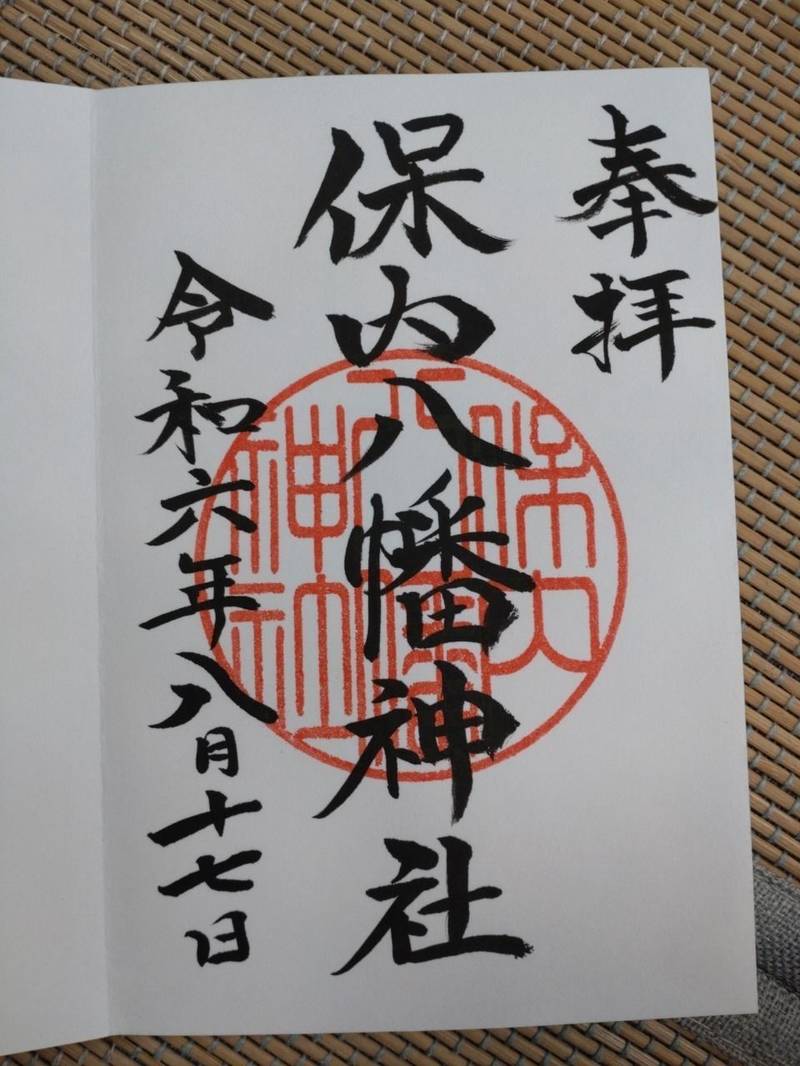 奉拝
保内八幡神社
令和六年八月十七日
保内
八幡
神社